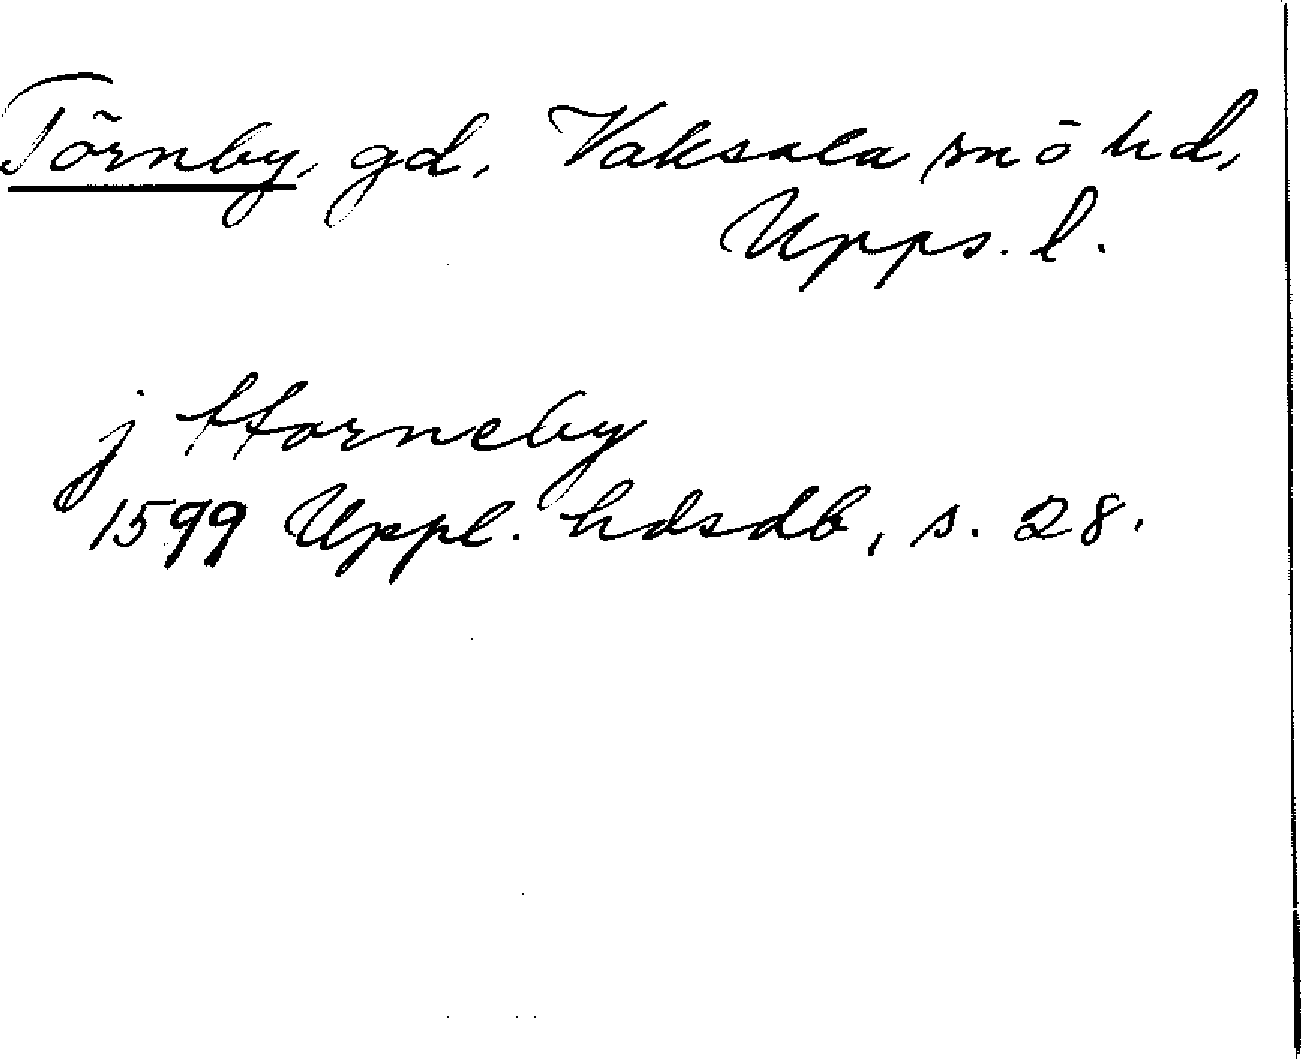 Törnby, gd, Vaksala sn o hd,
Upps. l.
j ttorneby
1599 Uppl. hdsdb, s. 28.